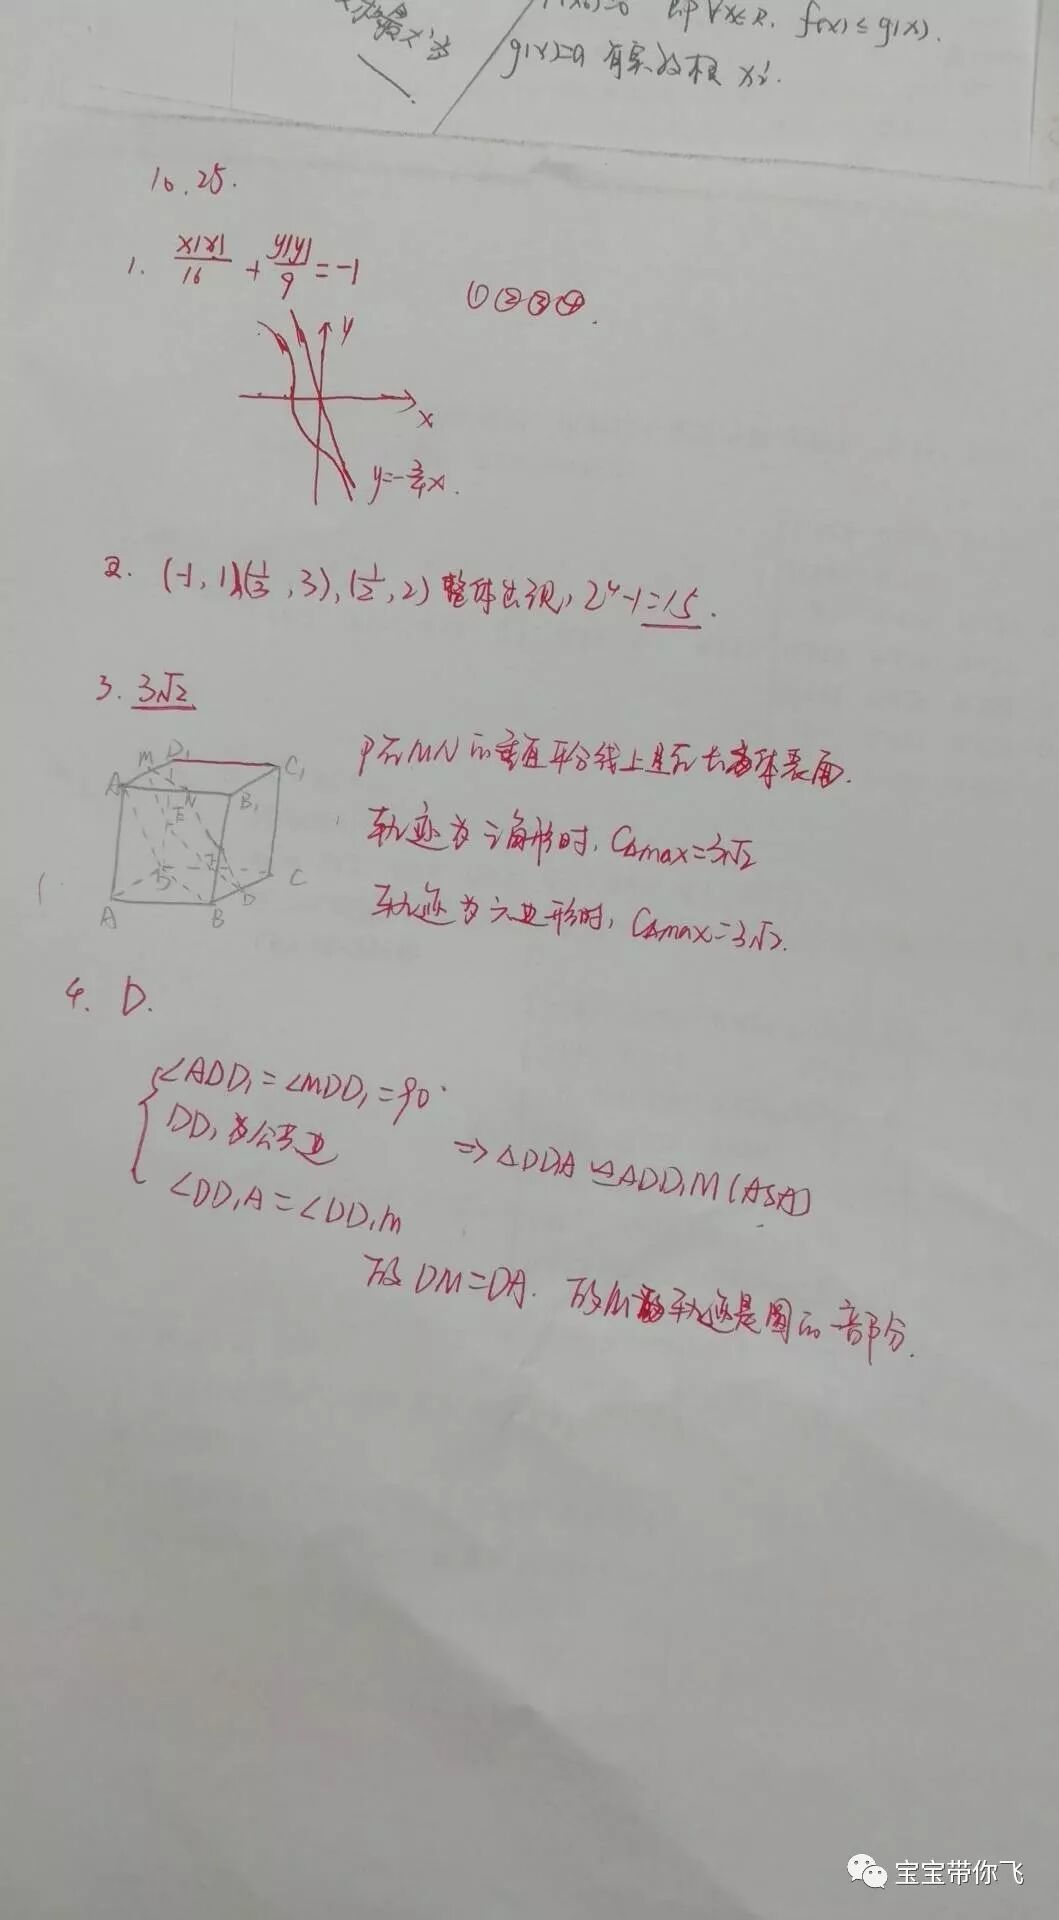 f(x)≤g(x).
g(x)=0 有实数根
10.25.
1. x|x|/16 + y|y|/9 = -1
①②③④.
y
x
y=-3/4x.
2. (-1,1)(1/3,3),(1/2,2)整体出现,2⁴-1=15.
3. 3√2
M D₁ C₁
A₁ N B₁
E
A B D C
P在MN的垂直平分线上且在长方体表面.
轨迹为三角形时,C△max=3√2
轨迹为六边形时,C△max=3√2.
4. D.
∠ADD₁=∠MDD₁=90°
DD₁为公共边
⇒△DD₁A≌△DD₁M(ASA)
∠DD₁A=∠DD₁M
故DM=DA. 故M的轨迹是圆的一部分.
宝宝带你飞